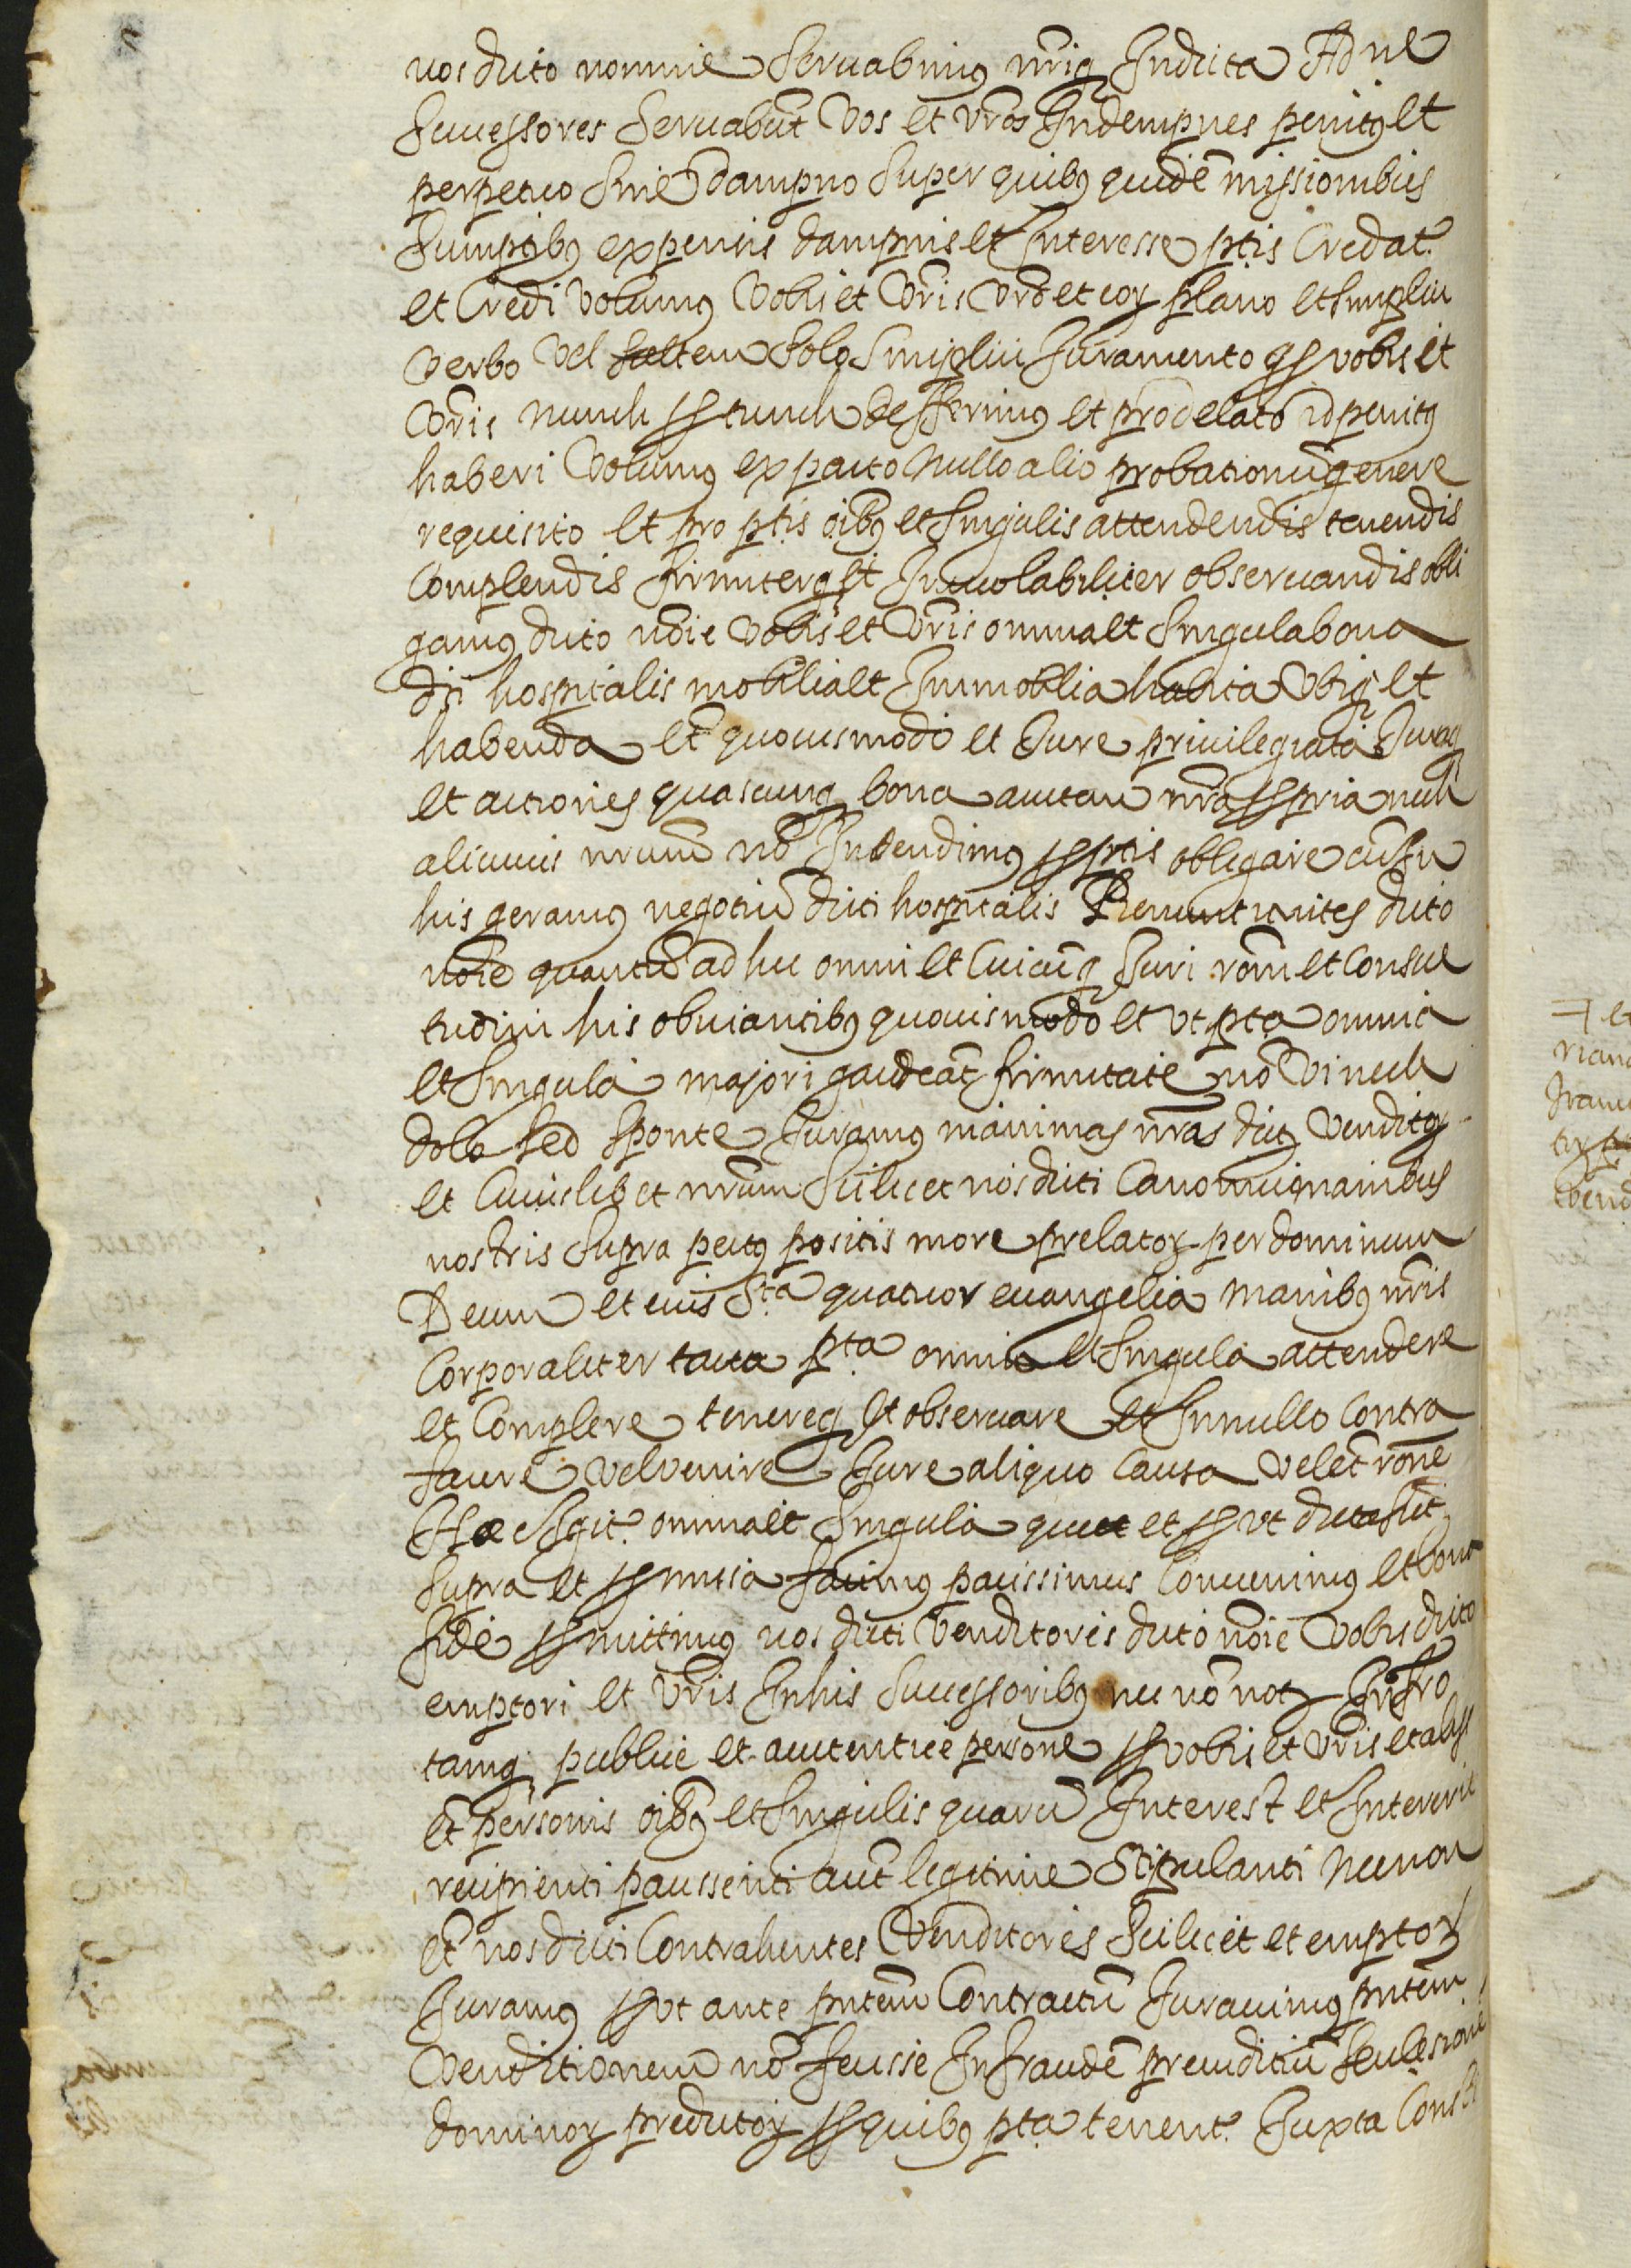 nos dicto nomine Servabimus nriq Indicta Adne
Successores Servabunt Vos et vros Indempnes penitus et
perpetuo Sine dampno Super quibus quidē missionibus
Sumptibus expensis dampnis et Interesse ptis Credat.
et Credi Volumus Vobis et Vris Vro et eoꝝ plano et simplici
Verbo Vel saltem Solo Simplici Juramento qd vobis et
Vris nunch pro tunch defferimus et pro delato id penitus
haberi Volumus ex pacto nullo alio probationū genere
requisito et pro ptis oibus et Singulis attendendis tenendis
Complendis firmiterq et Inviolabiliter observandis obli
gamus dicto noīe Vobis et Vris omnia et Singula bona
dti hospitalis mobilia et Immobilia habita Vbiq et
habenda et quovis modo et Jure privilegiata Juraq
et actiones quascunq bona autem nra propria nech
alicuius nrum nō Intendimus pro ptis obligare cū In
his geramus negotiū dicti hospitalis Renuntiantes dicto
noīe quantū ad hec omni et Cuicūq Juri rōni et Consue
tudini his obviantibus quovis modo et vt pta omnia
et Singula majori gaudeāt firmitate nō Vi nech
dolo sed sponte Juramus in animas nras dictoꝝ Venditoꝝ
et Cuiuslibet nrūm Scilicet nos dicti Canonici manibus
nostris Supra pectus positis more prelatoꝝ per dominum
Deum et eius Sta quatuor evangelia manibus nris
Corporaliter tacta pta omnia et Singula attendere
et Complere tenereq et observare et In nullo Contra
facere vel venire Jure aliquo Causa vel etiā rōne
Hæc Igit. omnia et Singula que et prout dicta sūt
Supra et promissa facimus paciscimus Convenimus et bona
fide promittimus nos dicti Venditores dicto noīe Vobis dicto
emptori et Vris In his Successoribus nec nō not. Infro
tamq publice et autentice persone pro vobis et Vris et aliis
etiā personis oibus et Singulis quarū Interest et Intererit
recipienti paciscenti aut legitime Stipulanti nec non
etiā nos dicti Contrahentes Venditores Scilicet et emptor
Juramus prout ante pntem Contractū Juravimus pntem
Venditionem nō fecisse In fraudē preiuditiū seu lesionē
dominoꝝ predictoꝝ pro quibus pta tenent. Juxta Consti